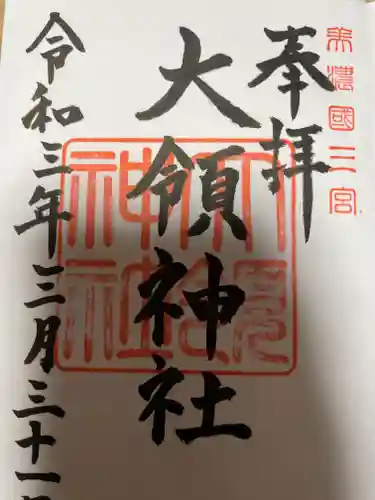 美濃國三宮
奉拝
大領神社
大領神社
令和三年三月三十一日